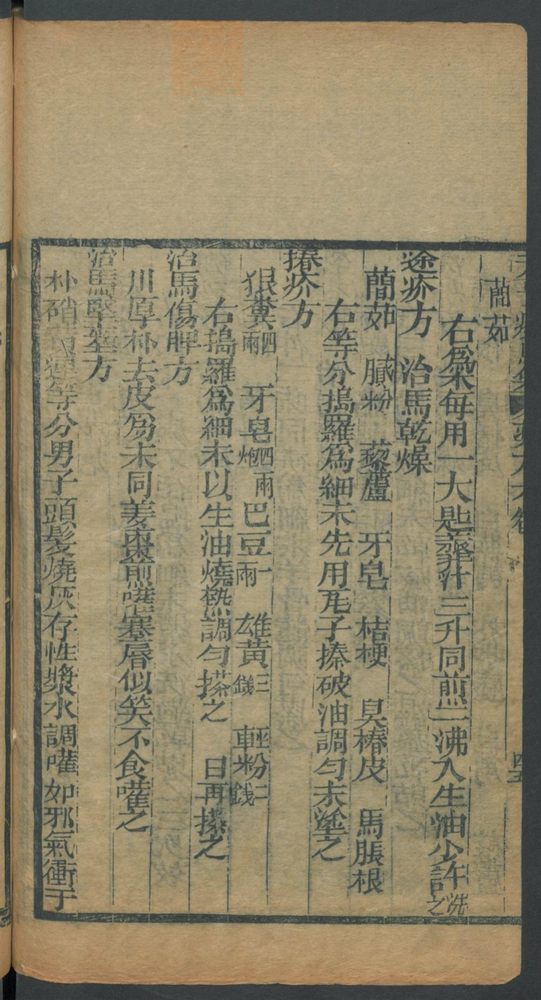 蘭茹
右為末每用一大匙虀汁三升同煎一沸入生油少許洗之
塗疥方 治馬乾燥
蘭茹 膩粉 藜蘆 牙皂 桔梗 臭椿皮 馬脹根
右等分搗羅為細末先用瓦子搽破油調勻末塗之
搽疥方
狼糞四兩 牙皂四兩炮 巴豆一兩 雄黃三錢 輕粉二錢
右搗羅為細末以生油燒熱調勻搽之 日再搽之
治馬傷脾方
川厚朴去皮為末同姜棗煎灌蹇唇似笑不食灌之
治馬
方
朴硝
等分男子頭髮燒灰存性漿水調灌如邪氣衝于